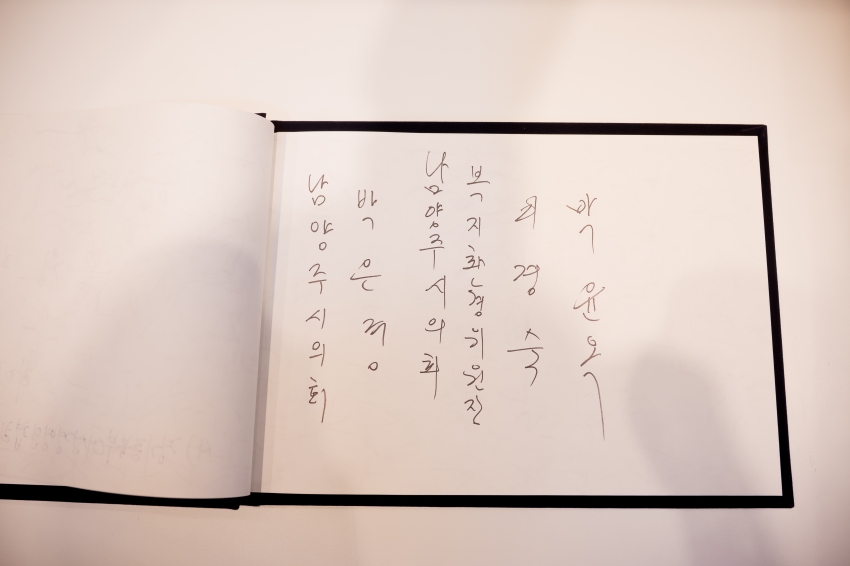 남양주시의회
박은경
남양주시의회
복지환경위원장
이경숙
박윤옥